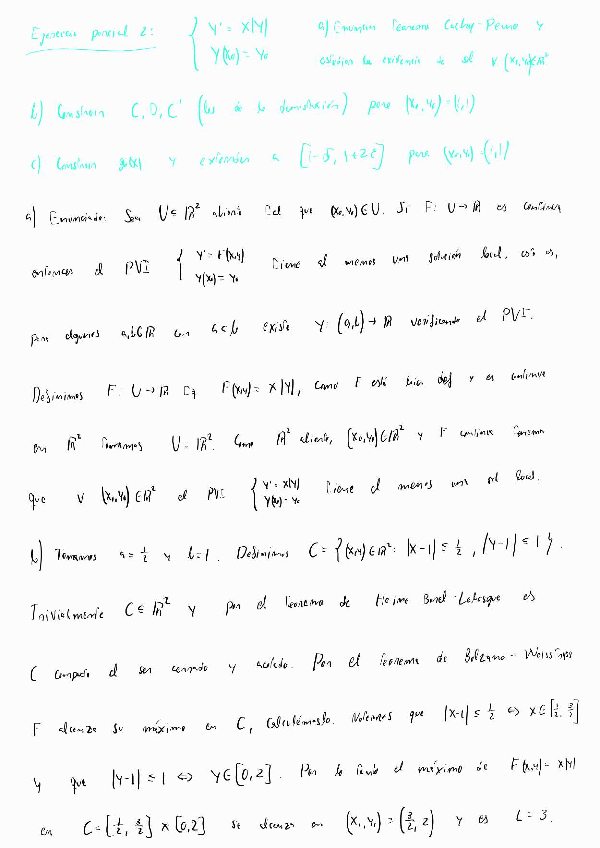 Ejercicio parcial 2: { Y' = X|Y| Y(x₀) = Y₀ a) Enunciar Teorema Cauchy-Peano y
estudiar la existencia de sol ∀ (x₀,y₀)∈ℝ²
b) Construir C, D, C' (los de la demostración) para (x₀,y₀) = (1,1)
c) Construir y extensión a [1-δ, 1+2ε] para (x₀,y₀) = (1,1)
a) Enunciado: Sea U⊆ℝ² abierto tal que (x₀,y₀)∈U. Si F: U→ℝ es continua
entonces el PVI { Y' = F(x,y) Y(x₀) = Y₀ tiene al menos una solución local, esto es,
para algunos a,b∈ℝ con a<b existe Y: (a,b)→ℝ verificando el PVI.
Definimos F: U→ℝ tq F(x,y) = X|Y|, como F está bien def y es continua
en ℝ² tomamos U = ℝ². Como ℝ² abierto, (x₀,y₀)∈ℝ² y F continua tenemos
que ∀ (x₀,y₀)∈ℝ² el PVI { Y' = X|Y| Y(x₀) = Y₀ tiene al menos una sol local.
b) Tomamos a = 1/2 y b = 1. Definimos C = {(x,y)∈ℝ²: |X-1| ≤ 1/2, |Y-1| ≤ 1}.
Trivialmente C⊆ℝ² y por el Teorema de Heine Borel-Lebesgue es
C compacto al ser cerrado y acotado. Por el teorema de Bolzano-Weierstrass
F alcanza su máximo en C, calculémoslo. Notemos que |X-1| ≤ 1/2 ⇔ X∈[1/2, 3/2]
y que |Y-1| ≤ 1 ⇔ Y∈[0,2]. Por lo tanto el máximo de F(x,y) = X|Y|
en C = [1/2, 3/2] × [0,2] se alcanza en (X₁,Y₁) = (3/2, 2) y es L = 3.